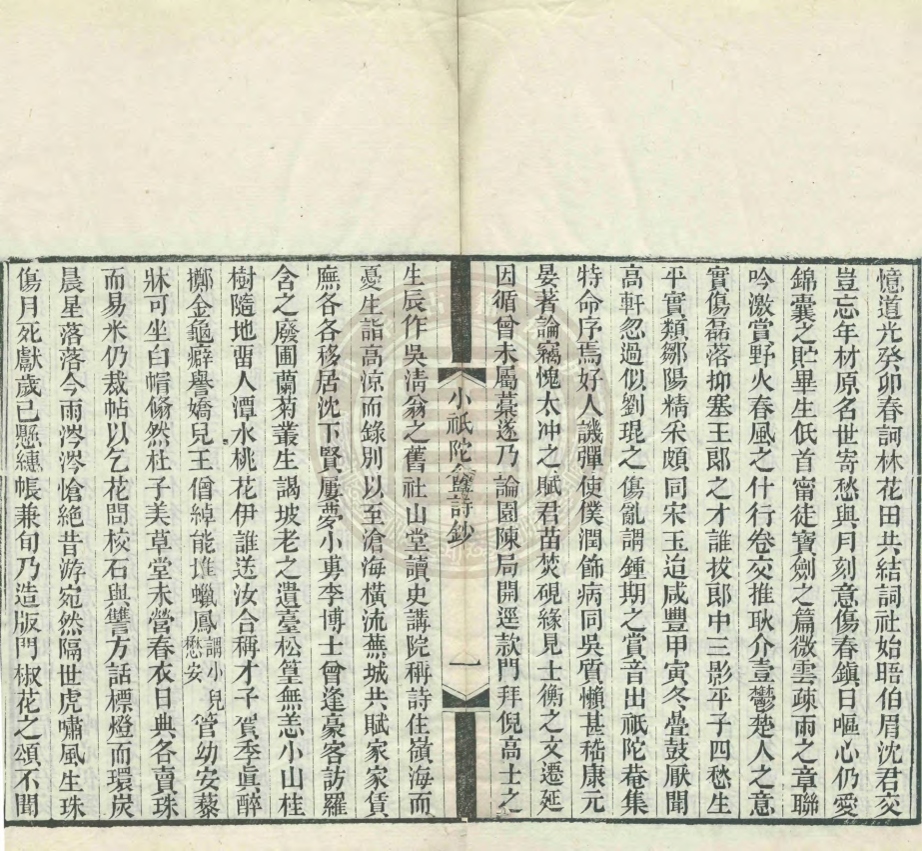 憶道光癸卯春訶林花田共結詞社始晤伯眉沈君交
豈忘年材原名世寄愁與月刻意傷春鎮日嘔心仍愛
錦囊之貯畢生低首甯徒寶劍之篇微雲疎雨之章聯
吟激賞野火春風之什行卷交推耿介壹鬱楚人之意
實傷磊落抑塞王郎之才誰拔郎中三影平子四愁生
平實類鄒陽精采頗同宋玉迨咸豐甲寅冬疊鼓厭聞
高軒忽過似劉琨之傷亂謂鍾期之賞音出祇陀菴集
特命序焉好人譏彈使僕潤飾病同吳質懶甚嵇康元
晏著論竊愧太冲之賦君苗焚硯緣見士衡之文遷延
因循曾未屬藁遂乃論園陳局開逕款門拜倪高士之
小祇陀盦詩鈔
一
生辰作吳淸翁之舊社山堂讀史講院稱詩住嶺海而
憂生詣高涼而錄別以至滄海橫流蕪城共賦家家賃
廡各各移居沈下賢屢夢小男李博士曾逢豪客訪羅
含之廢圃蘭菊叢生謁坡老之遺臺松篁無恙小山桂
樹隨地畱人潭水桃花伊誰送汝合稱才子賀季眞醉
擲金龜癖譽嬌兒王僧綽能堆蠟鳳謂小兒懋安管幼安藜
牀可坐白帽翛然杜子美草堂未營春衣日典各賣珠
而易米仍裁帖以乞花問校石與讐方話標燈而環炭
晨星落落今雨涔涔愴絕昔游宛然隔世虎嘯風生珠
傷月死獻歲已懸繐帳兼旬乃造版門椒花之頌不聞